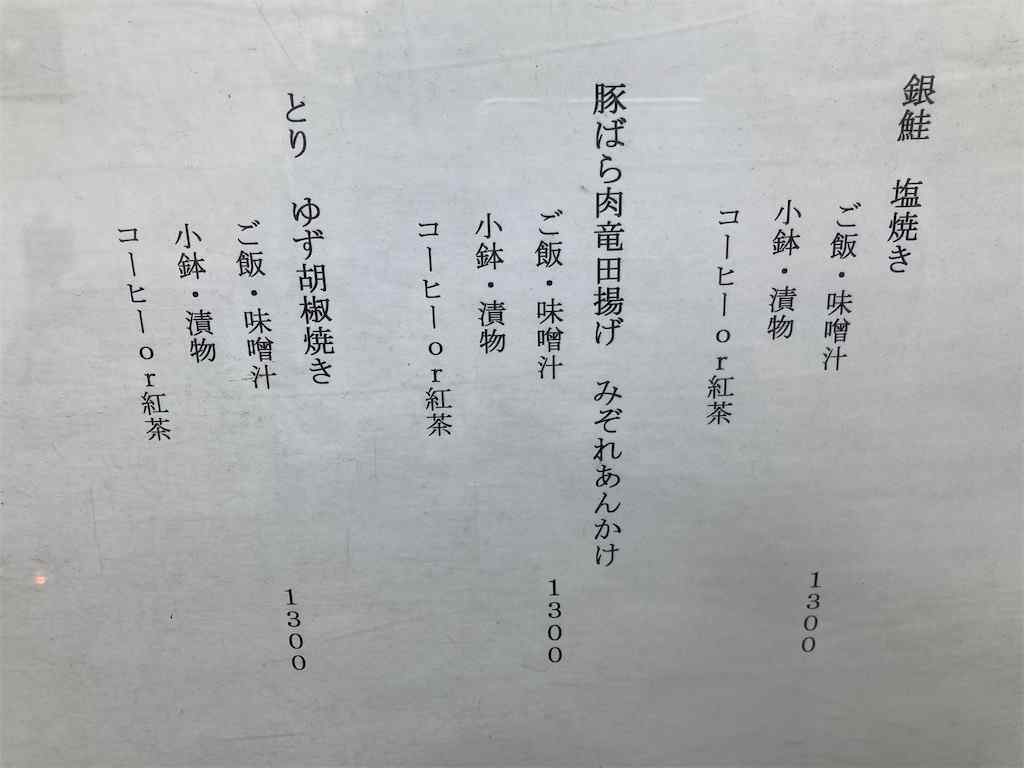 銀鮭　塩焼き
ご飯・味噌汁
小鉢・漬物
コーヒーor紅茶
1300
豚ばら肉竜田揚げ　みぞれあんかけ
ご飯・味噌汁
小鉢・漬物
コーヒーor紅茶
1300
とり　ゆず胡椒焼き
ご飯・味噌汁
小鉢・漬物
コーヒーor紅茶
1300